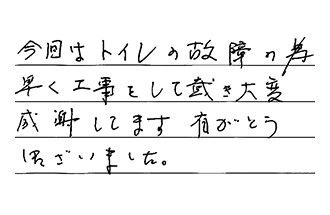 今回はトイレの故障の為
早く工事をして戴き大変
感謝してます 有がとう
ございました。